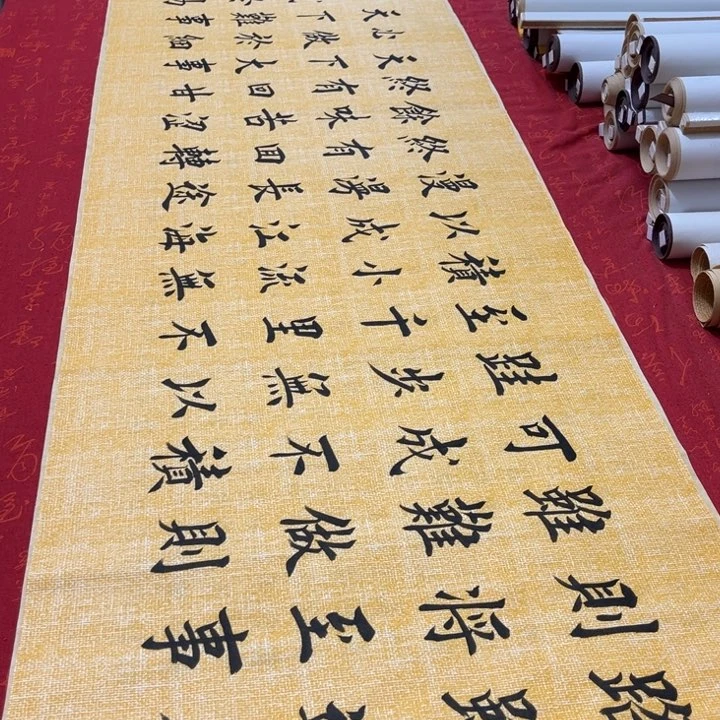 路雖
則將至事
雖難做則
可成不積
跬步無以
至千里不
積小流無
以成江海
漫漫長途
終有回轉
餘味苦澀
終有回甘
天下大事
必做於細
天下難事